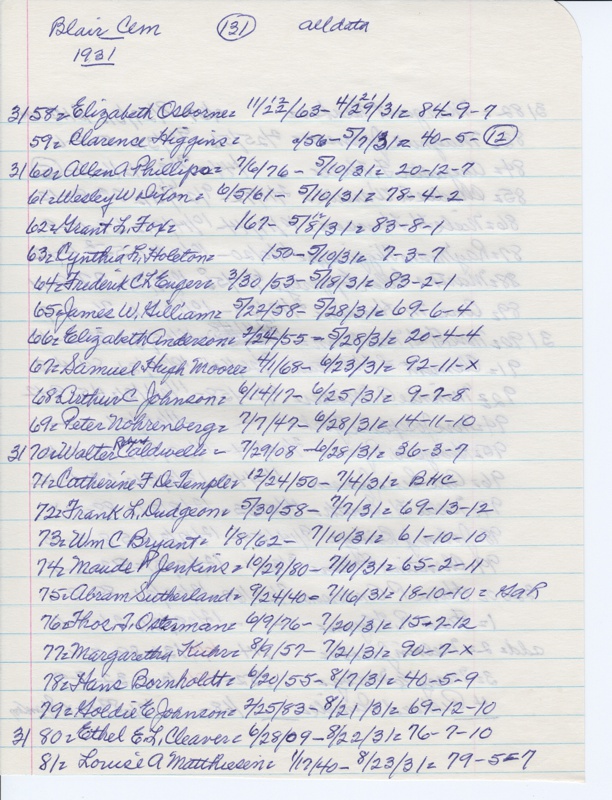 Blair Cem (131) alldata
1931
3158= Elizabeth Osborne= 11/22/63- 4/29/31= 84-9-7
59= Clarence Higgins= /56- 5/7/31= 40-5-(12)
3160= Allen A Phillips= 7/6/76- 5/10/31= 20-12-7
61= Wesley W Dixon= 6/5/61- 5/10/31= 78-4-2
62= Grant L. Fox= /67- 5/8/31= 83-8-1
63= Cynthia R. Holston= /50- 5/10/31= 7-3-7
64= Frederick C L Eugen= 3/30/53- 5/18/31= 83-2-1
65= James W. Gilliam= 5/22/58- 5/28/31= 69-6-4
66= Elizabeth Anderson= 2/24/55- 5/28/31= 20-4-4
67= Samuel Hugh Moore= 4/1/68- 6/23/31= 92-11-x
68= Arthur C Johnson= 6/14/17- 6/25/31= 9-7-8
69= Peter Nohrenberg= 7/7/47- 6/28/31= 14-11-10
3170= Walter Robert Caldwell= 7/29/08- 6/28/31= 36-3-7
71= Catherine F DeTemple= 12/24/50- 7/4/31= BHC
72= Frank L. Dudgeon= 5/30/58- 7/7/31= 69-13-12
73= Wm C Bryant= 1/8/62- 7/10/31= 61-10-10
74= Maude P Jenkins= 10/27/80- 7/10/31= 65-2-11
75= Abram Sutherland= 9/24/40- 7/16/31= 18-10-10= GaR
76= Thos. T. Osterman= 6/9/76- 7/20/31= 15-7-12
77= Margaretha Kuhr= 8/9/57- 7/21/31= 90-7-x
78= Hans Bornholdt= 6/20/55- 8/7/31= 40-5-9
79= Goldie E Johnson= 2/25/83- 8/21/31= 69-12-10
3180= Ethel E. L. Cleaver= 6/28/09- 8/22/31= 76-7-10
81= Louise A Matthiesen= 1/17/40- 8/23/31= 79-5-7